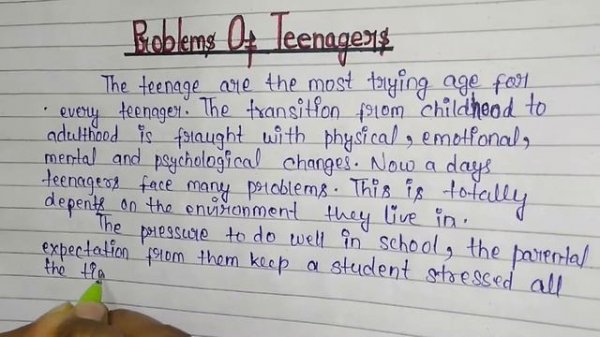 Problems Of Teenagers
The teenage are the most trying age for
every teenager. The transition from childhood to
adulthood is fraught with physical, emotional,
mental and psychological changes. Now a days
teenagers face many problems. This is totally
depents on the environment they live in.
The pressure to do well in school, the parental
expectation from them keep a student stressed all
the